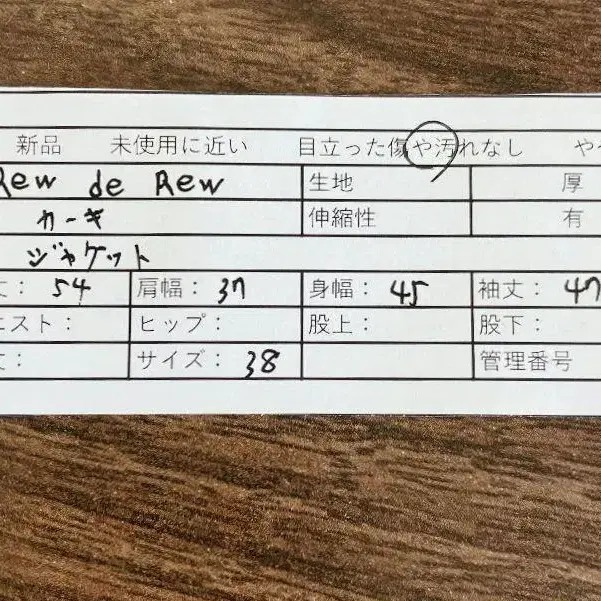 新品 未使用に近い 目立った傷や汚れなし や
Rew de Rew 生地 厚
カーキ 伸縮性 有
ジャケット
丈： 54 肩幅： 37 身幅： 45 袖丈： 47
エスト： ヒップ： 股上： 股下：
丈： サイズ： 38 管理番号